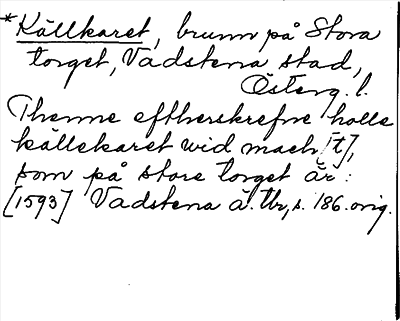 *Källkaret, brunn på Stora
torget, Vadstena stad,
Österg. l.
Thenne effterskrefne holle
källekaret wid mach[t],
som på store torget är:
[1593] Vadstena ä. Tb, s. 186. orig.